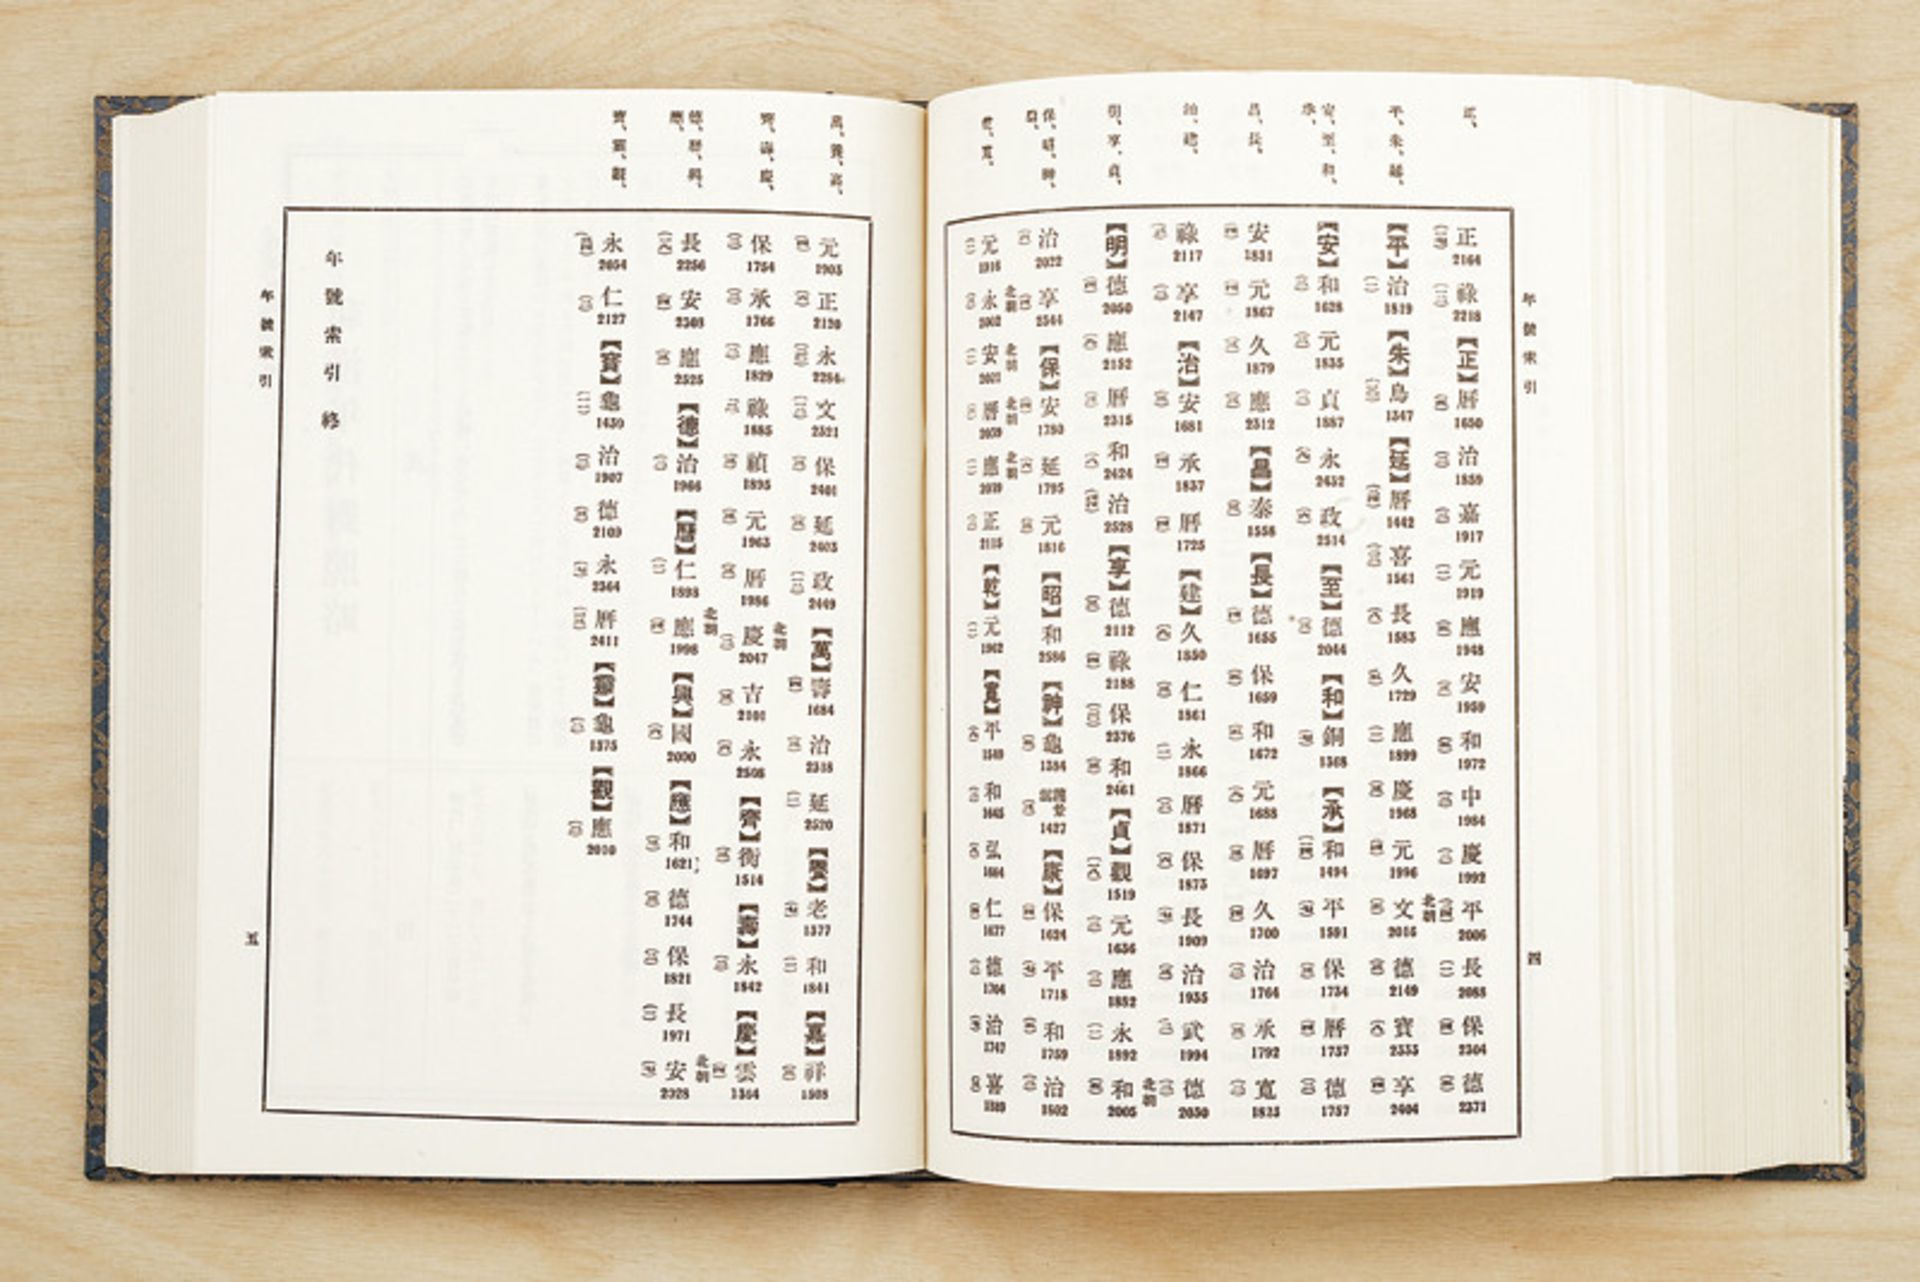 正、
平、朱、延、
安、至、和、
承、
昌、長、
治、建、
明、享、貞、
保、昭、神、
康、
乾、寬、
年號索引
四
正 2164 祿 2218 【正】 曆 1650 治 1859 嘉 1917 元 1919 應 1948 安 1959 和 1972 中 1984 慶 1992 平 2006 長 2088 保 2304 德 2371
【平】 治 1819 【朱】 鳥 1347 【延】 曆 1442 喜 1561 長 1583 久 1729 應 1899 慶 1968 元 1996 北朝 文 2016 德 2149 寶 2333 享 2404
【安】 和 1628 元 1835 貞 1887 永 2432 政 2514 【至】 德 2044 【和】 銅 1368 【承】 和 1494 平 1591 保 1734 曆 1737 德 1757
安 1831 元 1867 久 1879 應 2312 【昌】 泰 1558 【長】 德 1655 保 1659 和 1672 元 1688 曆 1697 久 1700 治 1764 承 1792 寬 1823
祿 2117 享 2147 【治】 安 1681 承 1837 曆 1725 【建】 久 1850 仁 1861 永 1866 曆 1871 保 1873 長 1909 治 1935 武 1994 北朝 德 2030
【明】 德 2050 應 2152 曆 2315 和 2424 治 2528 【享】 德 2112 祿 2188 保 2376 和 2461 【貞】 觀 1519 元 1636 應 1882 永 1892 和 2005
治 2022 享 2344 【保】 安 1780 延 1795 元 1816 【昭】 和 2586 【神】 龜 1384 護景雲 1427 【康】 保 1624 平 1718 和 1759 治 1802
元 1916 北朝 永 2002 北朝 安 2021 北朝 曆 2039 北朝 應 2039 正 2115 【乾】 元 1962 【寬】 平 1549 和 1645 弘 1664 仁 1677 德 1704 治 1747 喜 1889
萬、養、嘉、
齊、壽、慶、
德、曆、興、
應、
寶、靈、觀、
元 1903 正 2120 永 2284 文 2321 保 2401 延 2403 政 2449 【萬】 壽 1684 治 2318 延 2520 【養】 老 1377 和 1841 【嘉】 祥 1508
保 1754 承 1766 應 1829 祿 1885 禎 1895 元 1963 曆 1986 北朝 慶 2047 吉 2101 永 2508 【齊】 衡 1514 【壽】 永 1842 【慶】 雲 1364
長 2256 安 2308 應 2525 【德】 治 1966 【曆】 仁 1898 北朝 應 1998 【興】 國 2000 【應】 和 1621 德 1744 保 1821 長 1971 北朝 安 2028
永 2054 仁 2127 【寶】 龜 1430 治 1907 德 2109 永 2364 曆 2411 【靈】 龜 1375 【觀】 應 2010
年號索引終
年號索引
五